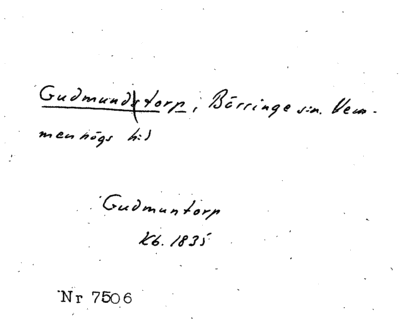 Gudmundstorp, Börringe sn. Vem-
menhögs hd
Gudmuntorp
Kb. 1835
Nr 7506